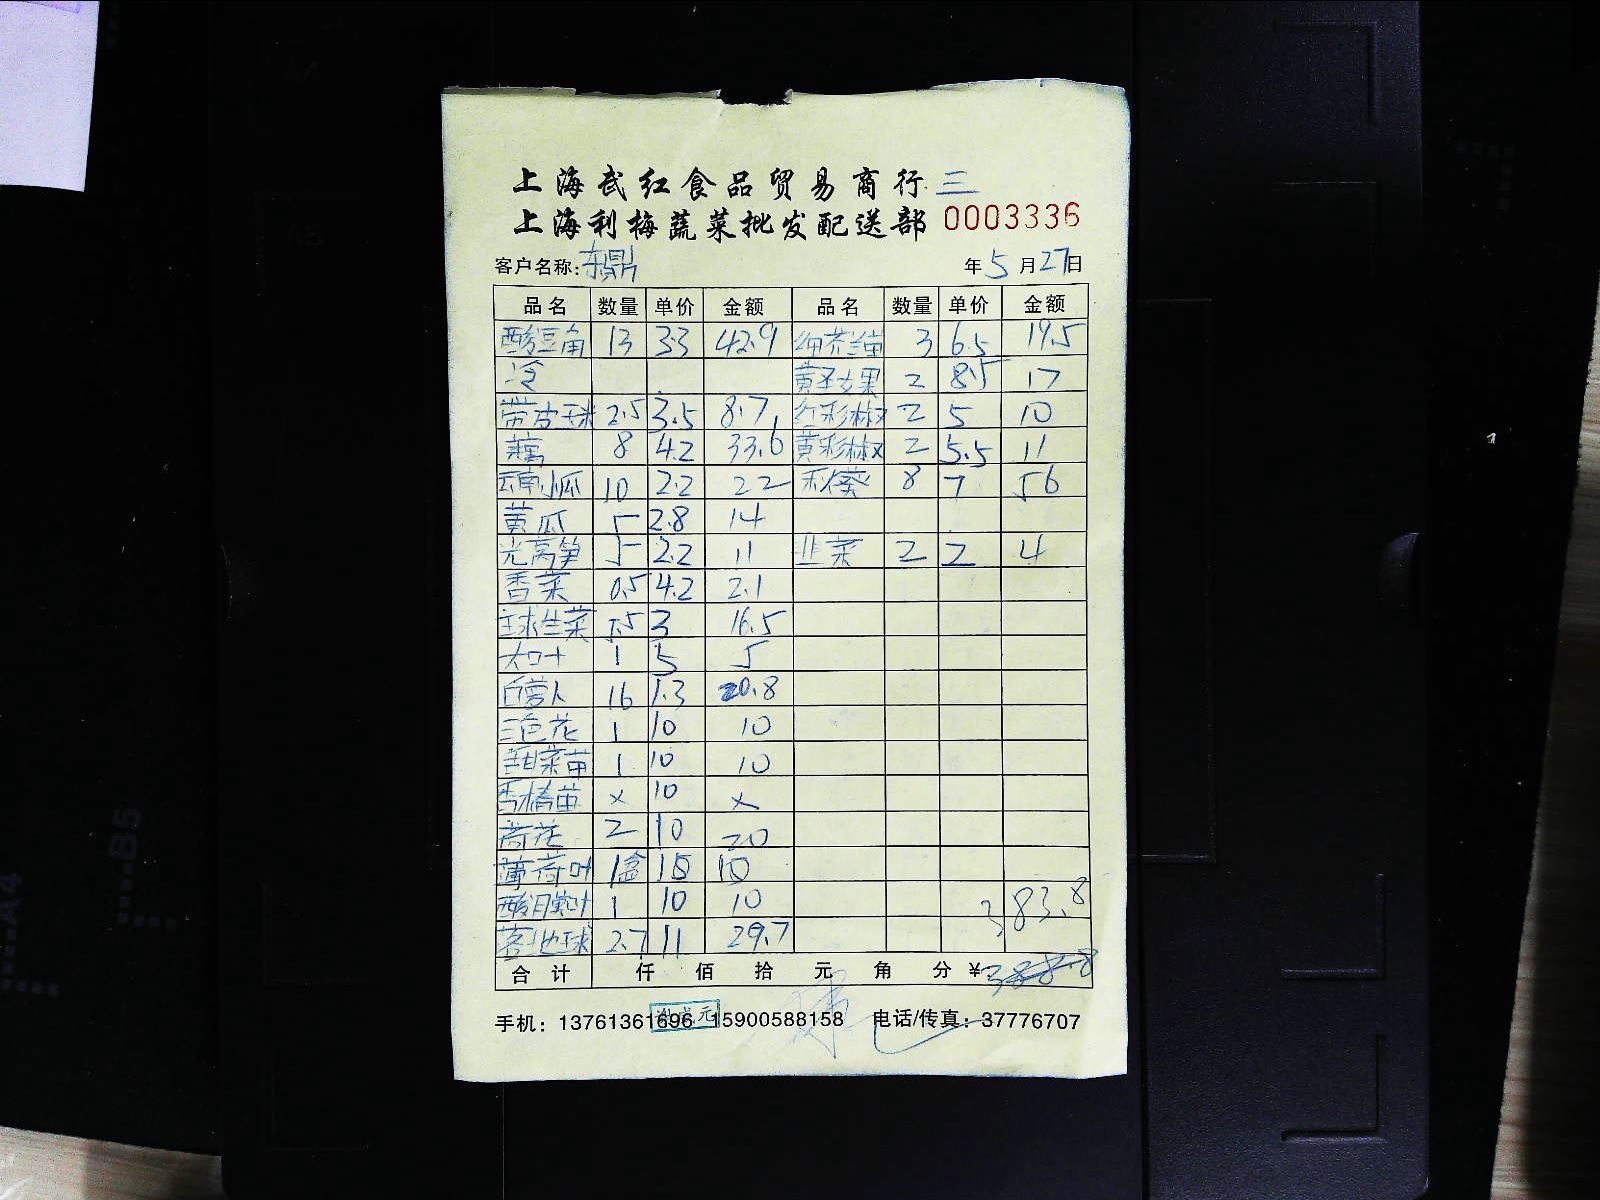 上海武红食品贸易商行 三
上海利梅蔬菜批发配送部 0003336
客户名称: 东鼎 年 5 月 27 日
品名 数量 单价 金额 品名 数量 单价 金额
酸豆角 13 3.3 42.9 3 6.5 19.5
冷 黄圣女果 2 8.5 17
带皮玉球 2.5 3.5 8.7 红彩椒 2 5 10
藕 8 4.2 33.6 黄彩椒 2 5.5 11
云南小瓜 10 2.2 22 秋葵 8 7 56
黄瓜 5 2.8 14
光莴笋 5 2.2 11 韭菜 2 2 4
香菜 0.5 4.2 2.1
球生菜 5.5 3 16.5
大叶 1 5 5
白萝卜 16 1.3 20.8
三色花 1 10 10
甜菜苗 1 10 10
香椿苗 × 10 ×
荷花 2 10 20
薄荷叶 1盒 10 10
酸膜叶 1 10 10
2.7 11 29.7 383.8
合计 仟 佰 拾 元 角 分 ¥ 388.8
手机: 13761361696 15900588158 电话/传真: 37776707